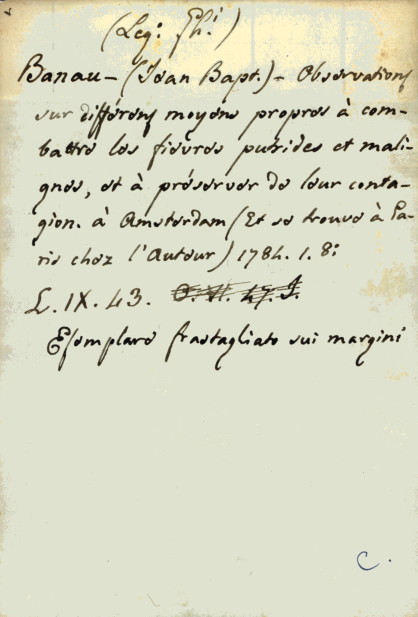 (Leg: Ph:)
Banau - (Jean Bapt.) - Observations
sur différens moyens propres à com-
battre les fièvres putrides et mali-
gnes, et à préserver de leur conta-
gion. à Amsterdam (Et se trouve à Pa-
ris chez l'Auteur) 1784. 1. 8:
L. IX. 43.
Esemplare frastagliato sui margini
C.